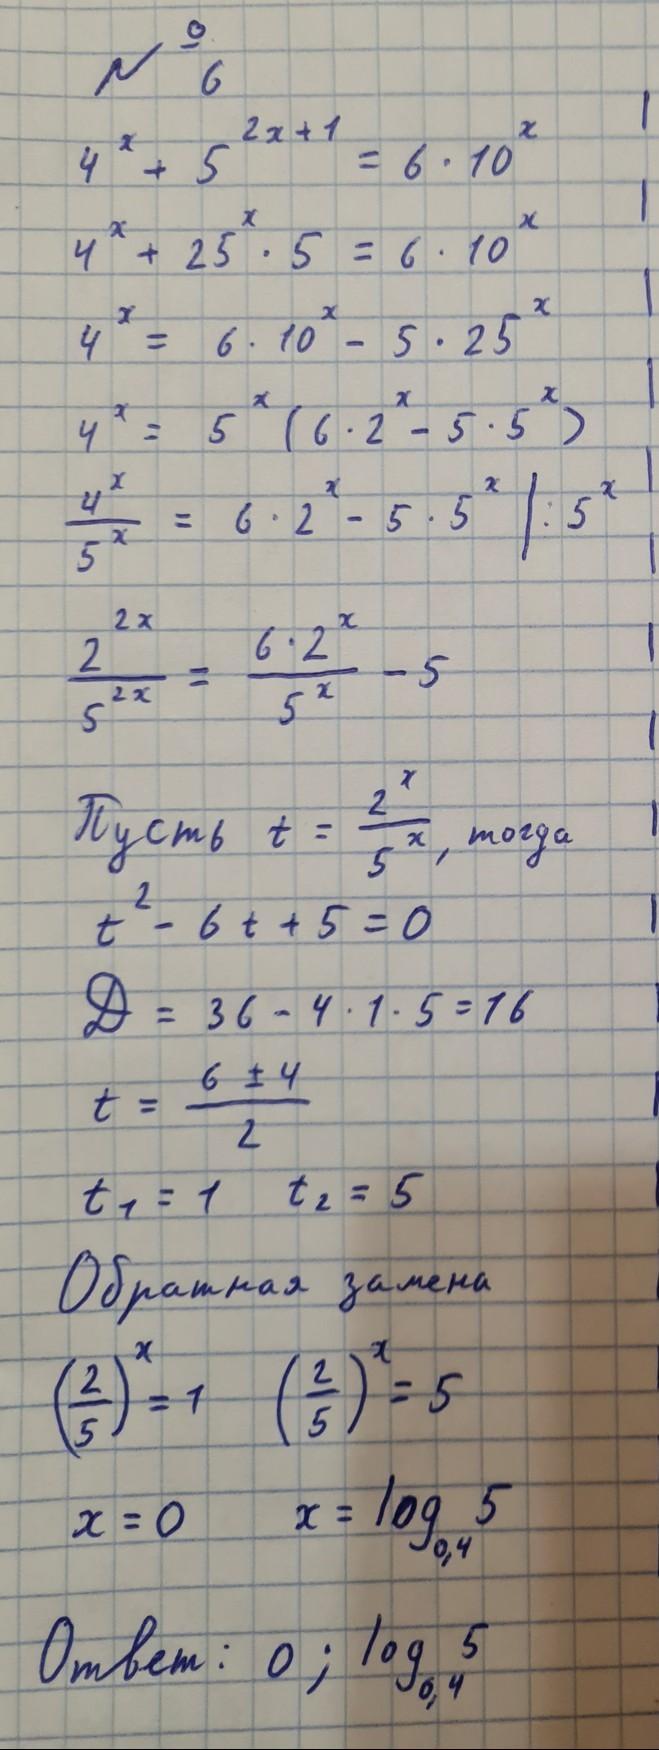 № 6
4^x + 5^(2x+1) = 6 · 10^x
4^x + 25^x · 5 = 6 · 10^x
4^x = 6 · 10^x - 5 · 25^x
4^x = 5^x (6 · 2^x - 5 · 5^x)
4^x/5^x = 6 · 2^x - 5 · 5^x | : 5^x
2^(2x)/5^(2x) = (6 · 2^x)/5^x - 5
Пусть t = 2^x/5^x, тогда
t^2 - 6t + 5 = 0
D = 36 - 4 · 1 · 5 = 16
t = (6 ± 4)/2
t₁ = 1 t₂ = 5
Обратная замена
(2/5)^x = 1 (2/5)^x = 5
x = 0 x = log_0,4 5
Ответ: 0; log_0,4 5